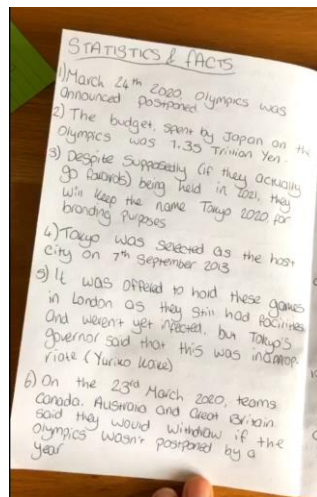 STATISTICS & FACTS
1) March 24th 2020, Olympics was
announced postponed
2) The budget, spent by Japan on the
Olympics was 1.35 Trillion Yen.
3) Despite supposedly (if they actually
go forwards) being held in 2021, they
will keep the name Tokyo 2020 for
branding purposes
4) Tokyo was selected as the host
city on 7th September 2013
5) It was offered to hold these games
in London as they still had facilities
and weren't yet infected, but Tokyo's
governor said that this was inapprop-
riate (Yuriko Koike)
6) On the 23rd March 2020, teams
Canada, Australia and Great Britain
said they would withdraw if the
Olympics wasn't postponed by a
year